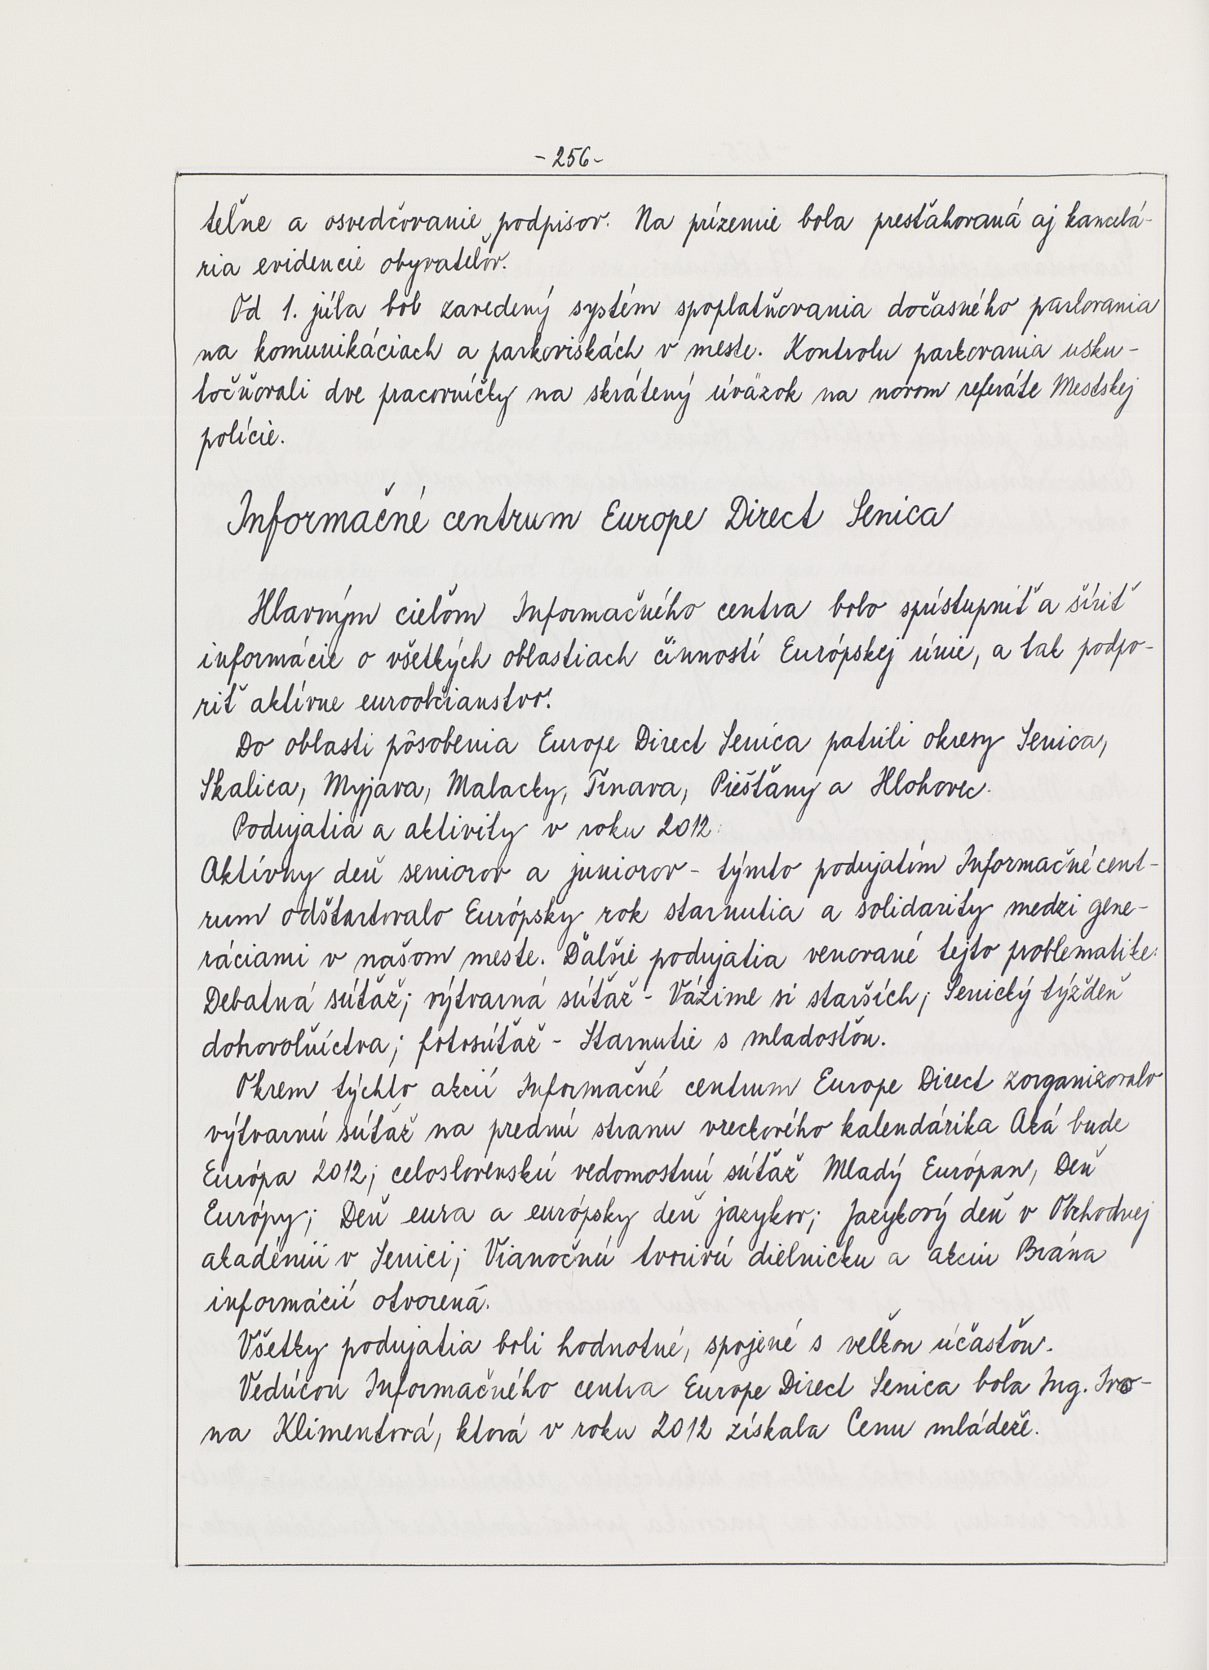 - 256 -
teľne a osvedčovanie podpisov. Na prízemie bola presťahovaná aj kancelá-
ria evidencie obyvateľov.
Od 1. júla bol zavedený systém spoplatňovania dočasného parkovania
na komunikáciach a parkoviskách v meste. Kontrolu parkovania usku-
točňovali dve pracovníčky na skrátený úväzok na novom referáte Mestskej
polície.
Informačné centrum Europe Direct Senica
Hlavným cieľom Informačného centra bolo sprístupniť a šíriť
informácie o všetkých oblastiach činností Európskej únie, a tak podpo-
riť aktívne euroobčianstvo.
Do oblasti pôsobenia Europe Direct Senica patrili okresy Senica,
Skalica, Myjava, Malacky, Trnava, Piešťany a Hlohovec.
Podujatia a aktivity v roku 2012:
Aktívny deň seniorov a juniorov - týmto podujatím Informačné cent-
rum odštartovalo Európsky rok starnutia a solidarity medzi gene-
ráciami v našom meste. Ďalšie podujatia venované tejto problematike:
Debatná súťaž; výtvarná súťaž - Vážime si starších; Senický týždeň
dobrovoľníctva; fotosúťaž - Starnutie s mladosťou.
Okrem týchto akcií Informačné centrum Europe Direct zorganizovalo
výtvarnú súťaž na prednú stranu vreckového kalendárika Aká bude
Európa 2012; celoslovenskú vedomostnú súťaž Mladý Európan, Deň
Európy; Deň eura a európsky deň jazykov; Jazykový deň v Obchodnej
akadémii v Senici; Vianočnú tvorivú dielničku a akciu Brána
informácií otvorená.
Všetky podujatia boli hodnotné, spojené s veľkou účasťou.
Vedúcou Informačného centra Europe Direct Senica bola Ing. Ivo-
na Klimentová, ktorá v roku 2012 získala Cenu mládeže.